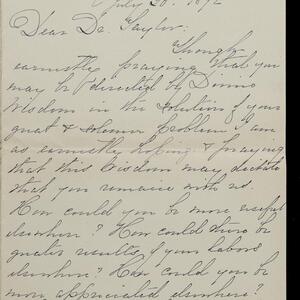 July 20. 1892
Dear Dr. Taylor:
Though
earnestly praying that you
may be directed by Divine
Wisdom in the solution of your
great & solemn problem I am
as earnestly hoping & praying
that this Wisdom may dictate
that you remain with us.
How could you be more useful
elsewhere? How could there be
greater results of your labors
elsewhere? How could you be
more appreciated elsewhere?